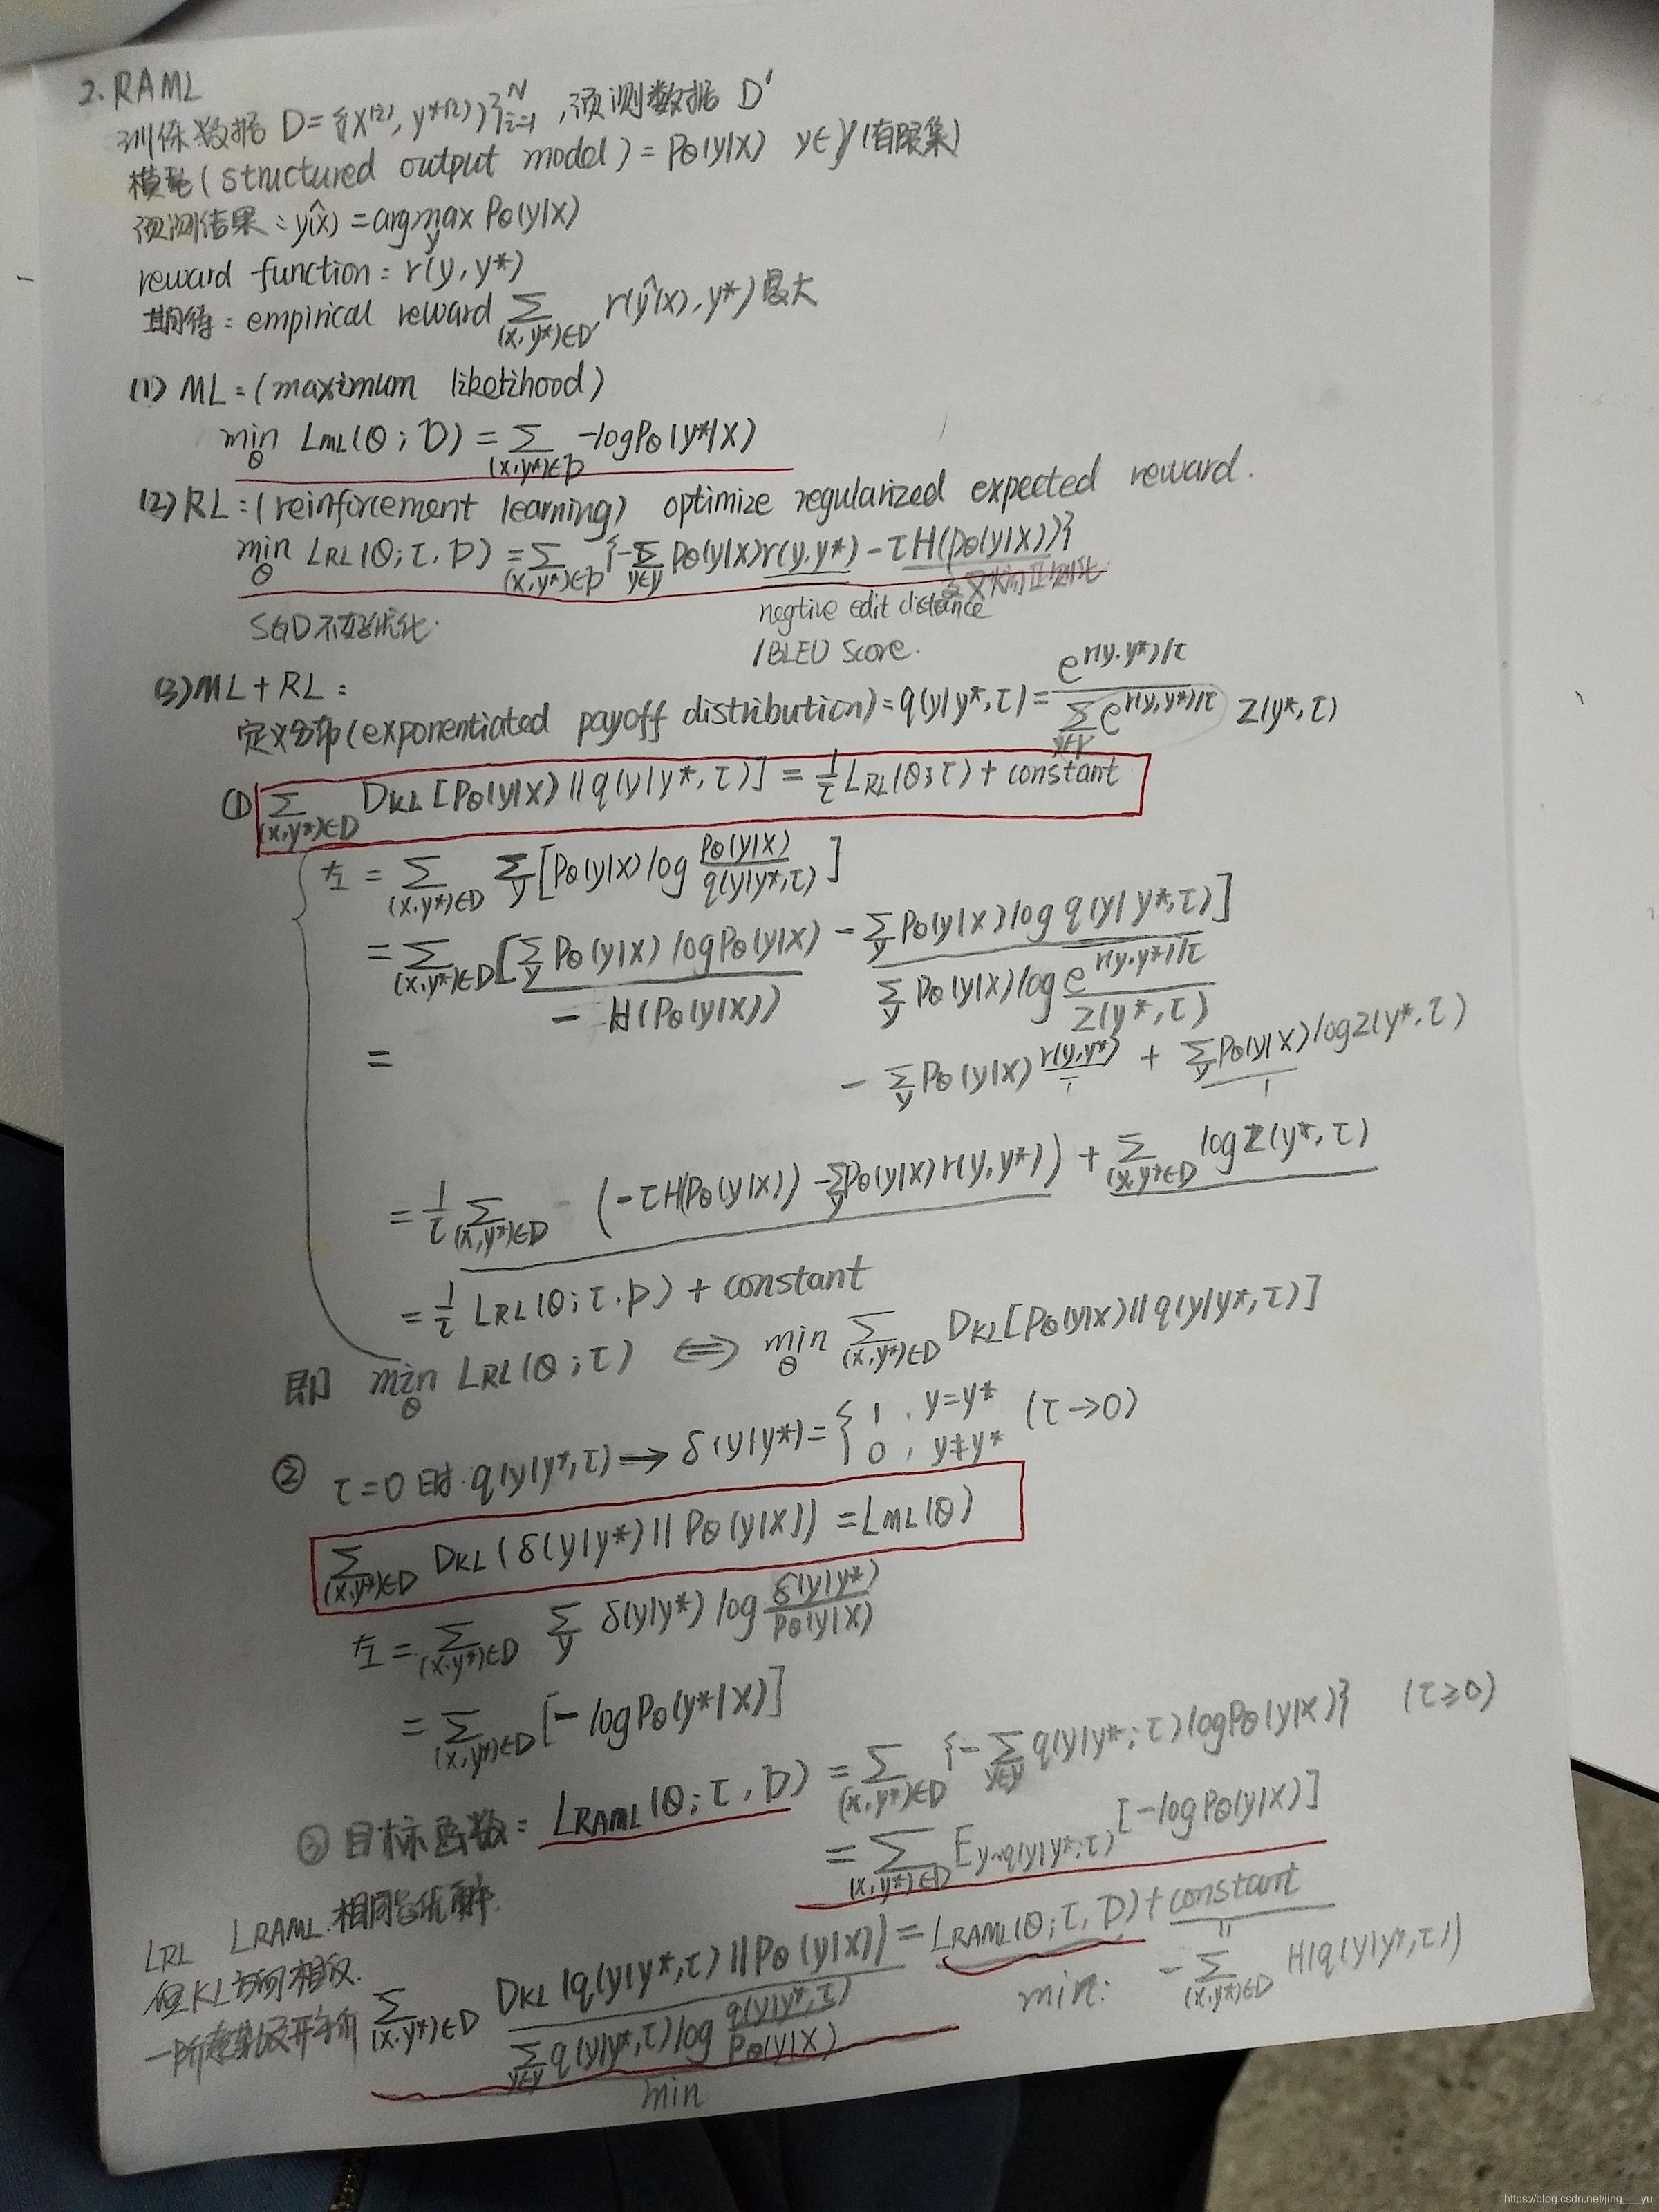 2. RAML
训练数据 D={(x⁽ⁱ⁾, y*⁽ⁱ⁾)}ᵢ₌₁ᴺ, 预测数据 D'
模型(structured output model): Pθ(y|x) y∈Y(有限集)
预测结果: ŷ(x) = argmax_y Pθ(y|x)
reward function: r(y, y*)
期待: empirical reward Σ_(x,y*)∈D' r(ŷ(x), y*) 最大
(1) ML: (maximum likelihood)
min_θ LML(θ; D) = Σ_(x,y*)∈D -logPθ(y*|x)
(2) RL: (reinforcement learning) optimize regularized expected reward.
min_θ LRL(θ; τ, D) = Σ_(x,y*)∈D {-Σ_y∈Y Pθ(y|x)r(y,y*) - τH(Pθ(y|x))}
正则化
SGD 不好优化.
negtive edit distance
/BLEU Score.
(3) ML+RL:
定义分布(exponentiated payoff distribution): q(y|y*,τ) = e^{r(y,y*)/τ} / Σ_y∈Y e^{r(y,y*)/τ} Z(y*,τ)
① Σ_(x,y*)∈D DKL[Pθ(y|x)||q(y|y*,τ)] = 1/τ LRL(θ;τ) + constant
左 = Σ_(x,y*)∈D Σ_y [Pθ(y|x) log Pθ(y|x)/q(y|y*,τ)]
= Σ_(x,y*)∈D [Σ_y Pθ(y|x) logPθ(y|x) - Σ_y Pθ(y|x) log q(y|y*,τ)]
- H(Pθ(y|x)) Σ_y Pθ(y|x) log e^{r(y,y*)/τ}/Z(y*,τ)
= - Σ_y Pθ(y|x) r(y,y*)/τ + Σ_y Pθ(y|x) logZ(y*,τ)
1
= 1/τ Σ_(x,y*)∈D (-τH(Pθ(y|x)) - Σ_y Pθ(y|x) r(y,y*)) + Σ_(x,y*)∈D logZ(y*,τ)
= 1/τ LRL(θ; τ, D) + constant
即 min_θ LRL(θ; τ) ⟺ min_θ Σ_(x,y*)∈D DKL[Pθ(y|x)||q(y|y*,τ)]
② τ=0时 q(y|y*,τ) → δ(y|y*) = { 1, y=y* (τ→0)
0, y≠y*
Σ_(x,y*)∈D DKL(δ(y|y*)||Pθ(y|x)) = LML(θ)
左 = Σ_(x,y*)∈D Σ_y δ(y|y*) log δ(y|y*)/Pθ(y|x)
= Σ_(x,y*)∈D [-logPθ(y*|x)]
③ 目标函数: LRAML(θ; τ, D) = Σ_(x,y*)∈D {-Σ_y∈Y q(y|y*;τ) logPθ(y|x)} (τ≥0)
= Σ_(x,y*)∈D E_{y~q(y|y*;τ)} [-logPθ(y|x)]
LRL LRAML 相同最优解.
但KL方向相反.
Σ_(x,y*)∈D DKL(q(y|y*,τ)||Pθ(y|x)) = LRAML(θ; τ, D) + constant
Σ_y∈Y q(y|y*,τ) log q(y|y*,τ)/Pθ(y|x)
min
min: = -Σ_(x,y*)∈D H(q(y|y*,τ))
https://blog.csdn.net/jing___yu